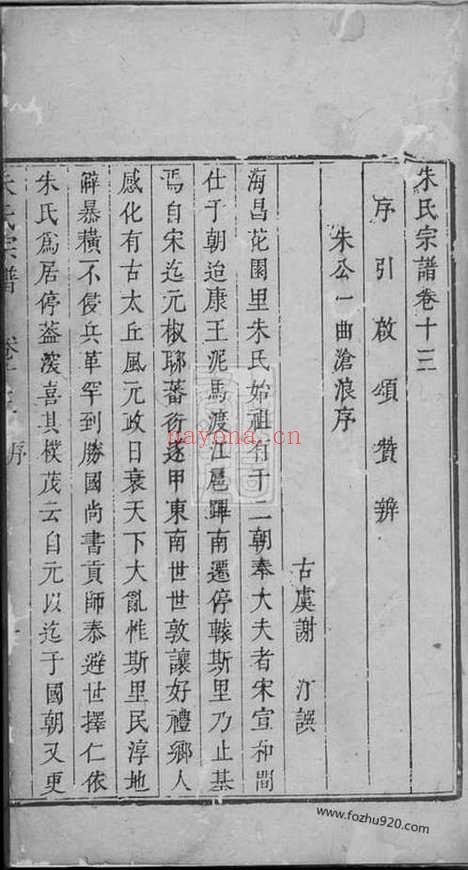 朱氏宗譜卷十三
序引啟頌贊辨
朱公一曲滄浪序
古虞謝汀譔
海昌花園里朱氏始祖有十二朝奉大夫者宋宣和間
仕于朝迨康王泥馬渡江扈蹕南遷停轅斯里乃止基
焉自宋迄元椒聊蕃衍遂甲東南世世敦讓好禮鄉人
感化有古太丘風元政日衰天下大亂惟斯里民淳地
僻暴橫不侵兵革罕到勝國尚書貢師泰避世擇仁依
朱氏爲居停蓋深喜其樸茂云自元以迄于國朝又更
朱氏宗譜 卷十三 序 一
nayona.cn
www.fozhu920.com